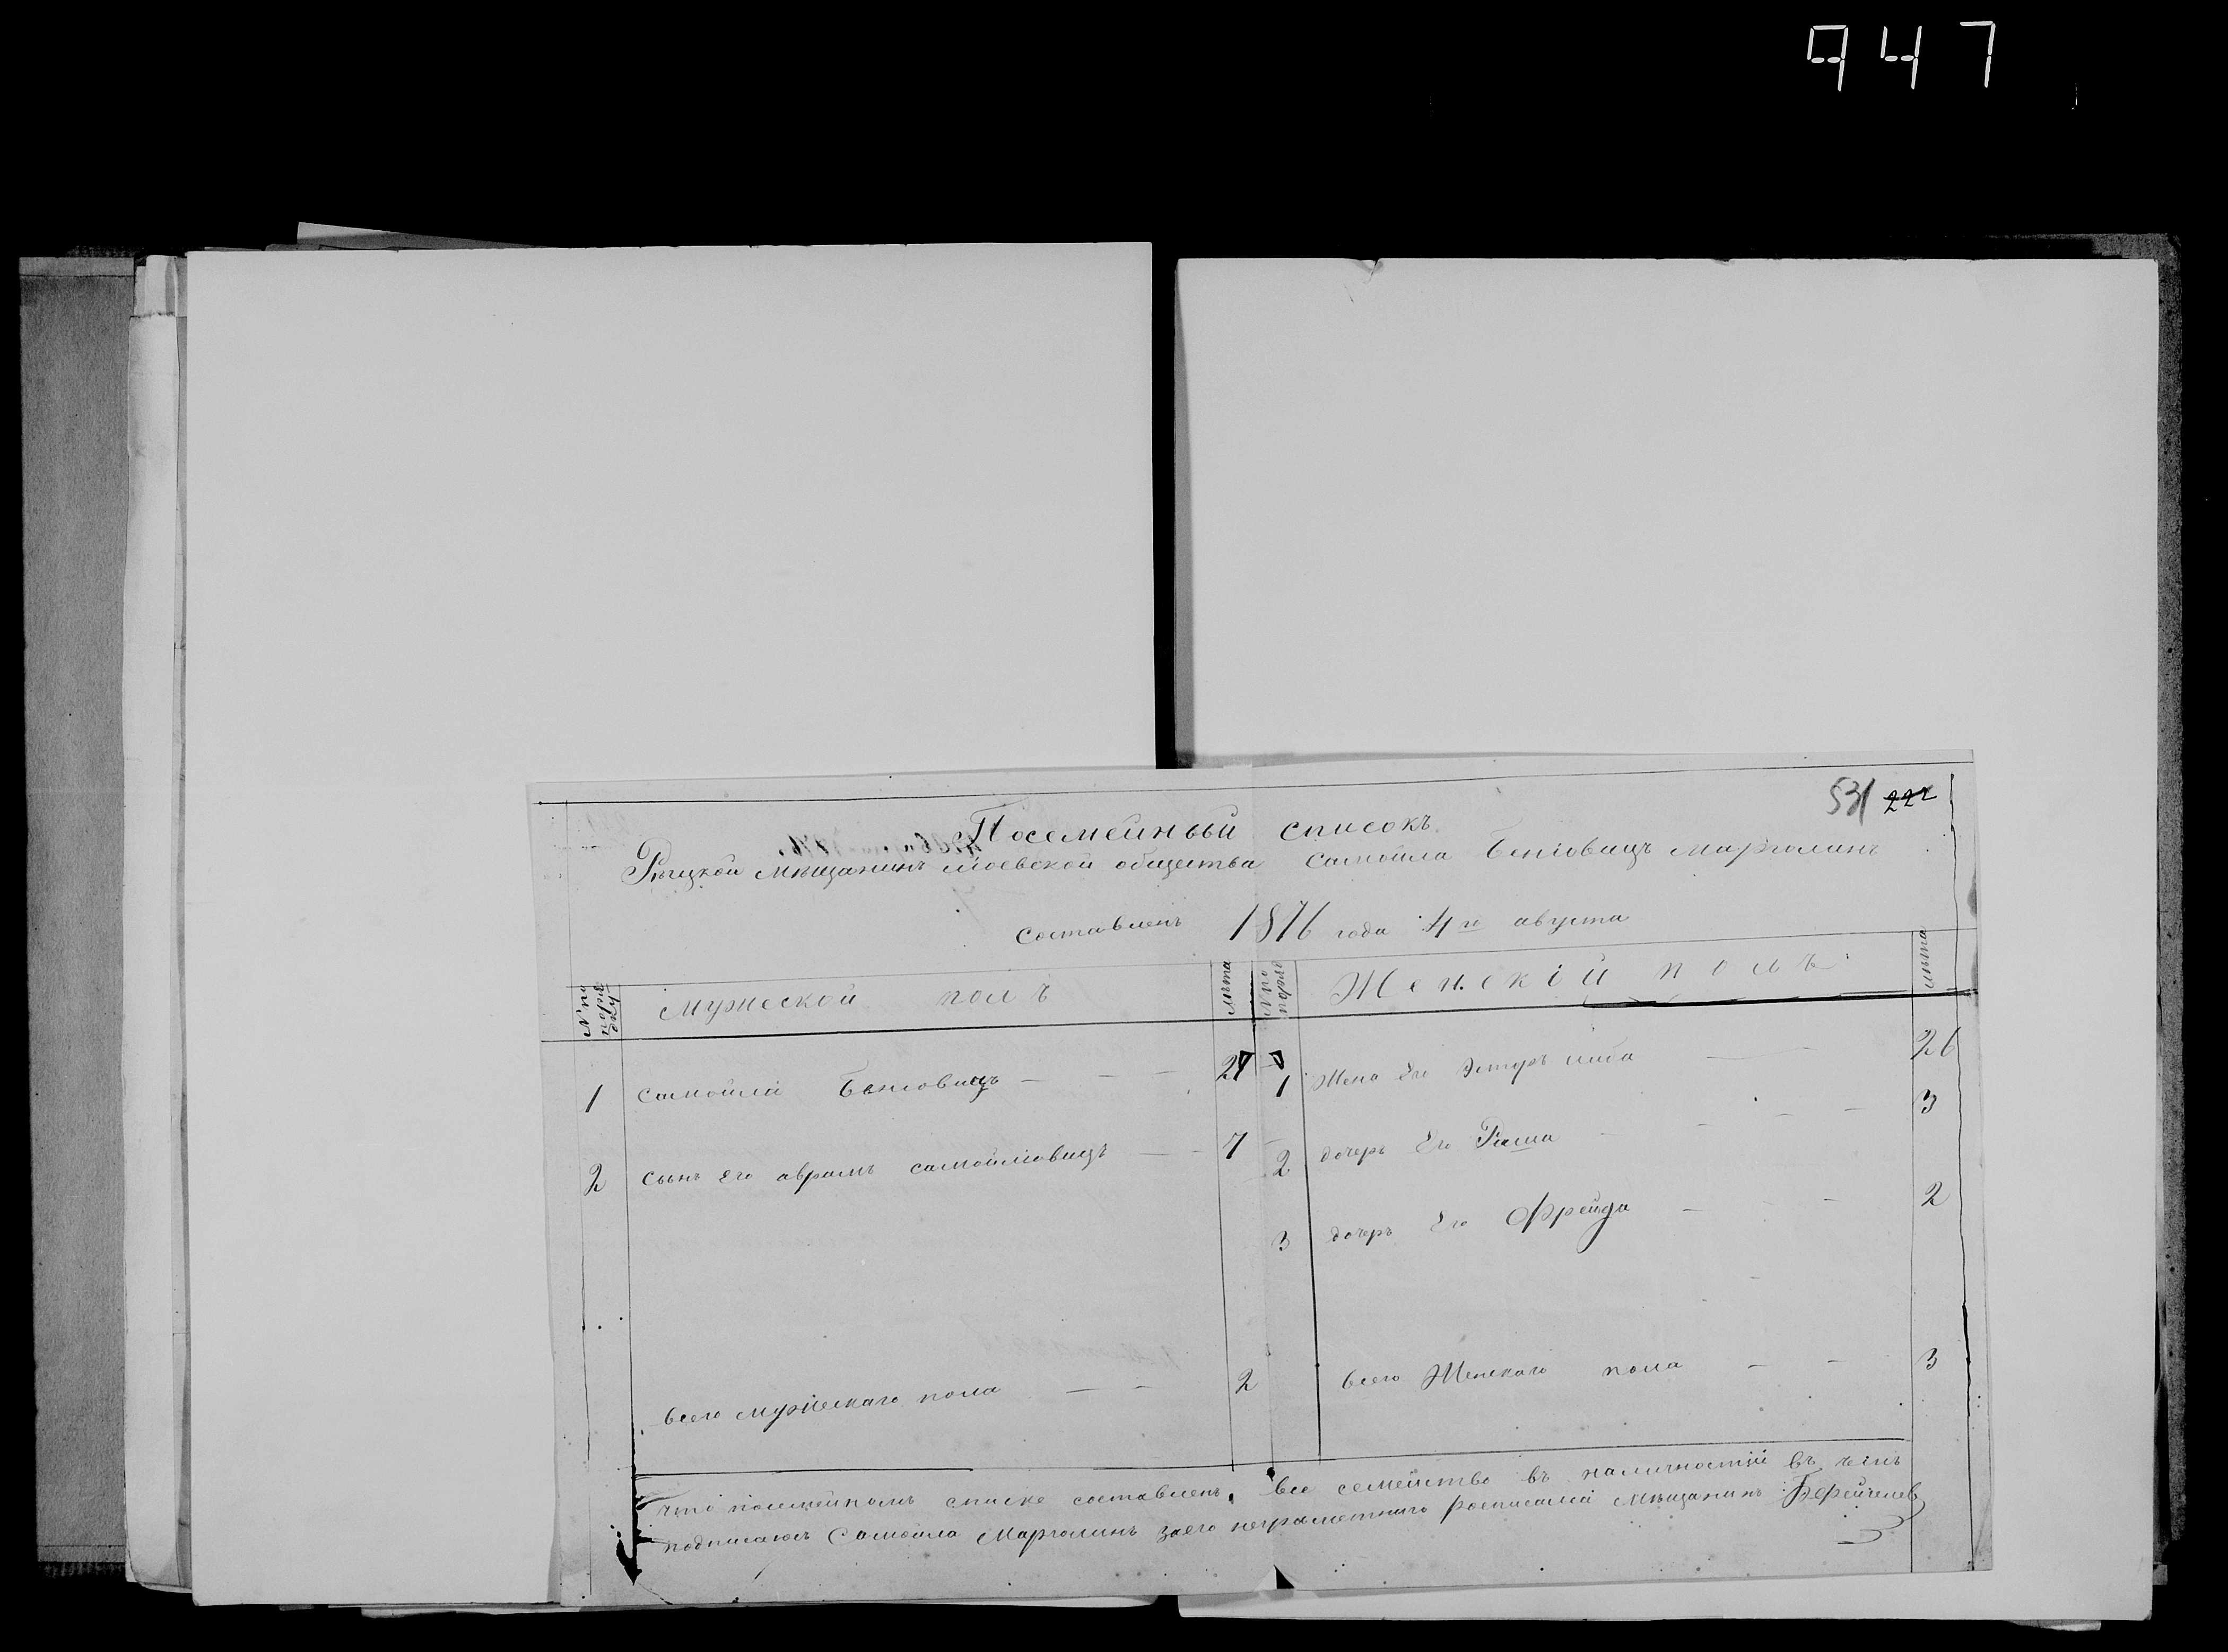 947
531 222
Посемейный списокъ
мѣщанинъ общества Самойла марголинъ
Составленъ 1876 года 4го августа
№ по порядку
мужеской полъ
лѣта
№ по поряд
Женскій полъ
лѣта
1 Самойла 27
1 Жена Его Эстеръ 26
2 Сынъ Его аврамъ самойловицъ 7
2 дочерь Его Раша 3
3 дочерь Его Фрейда 2
всего мужескаго пола 2
всего Женскаго пола 3
что составленъ все семейство въ наличностіи въ чемъ
подписаюсь Самойла Марголинъ заего неграмотнаго росписалсі Мѣщанинъ